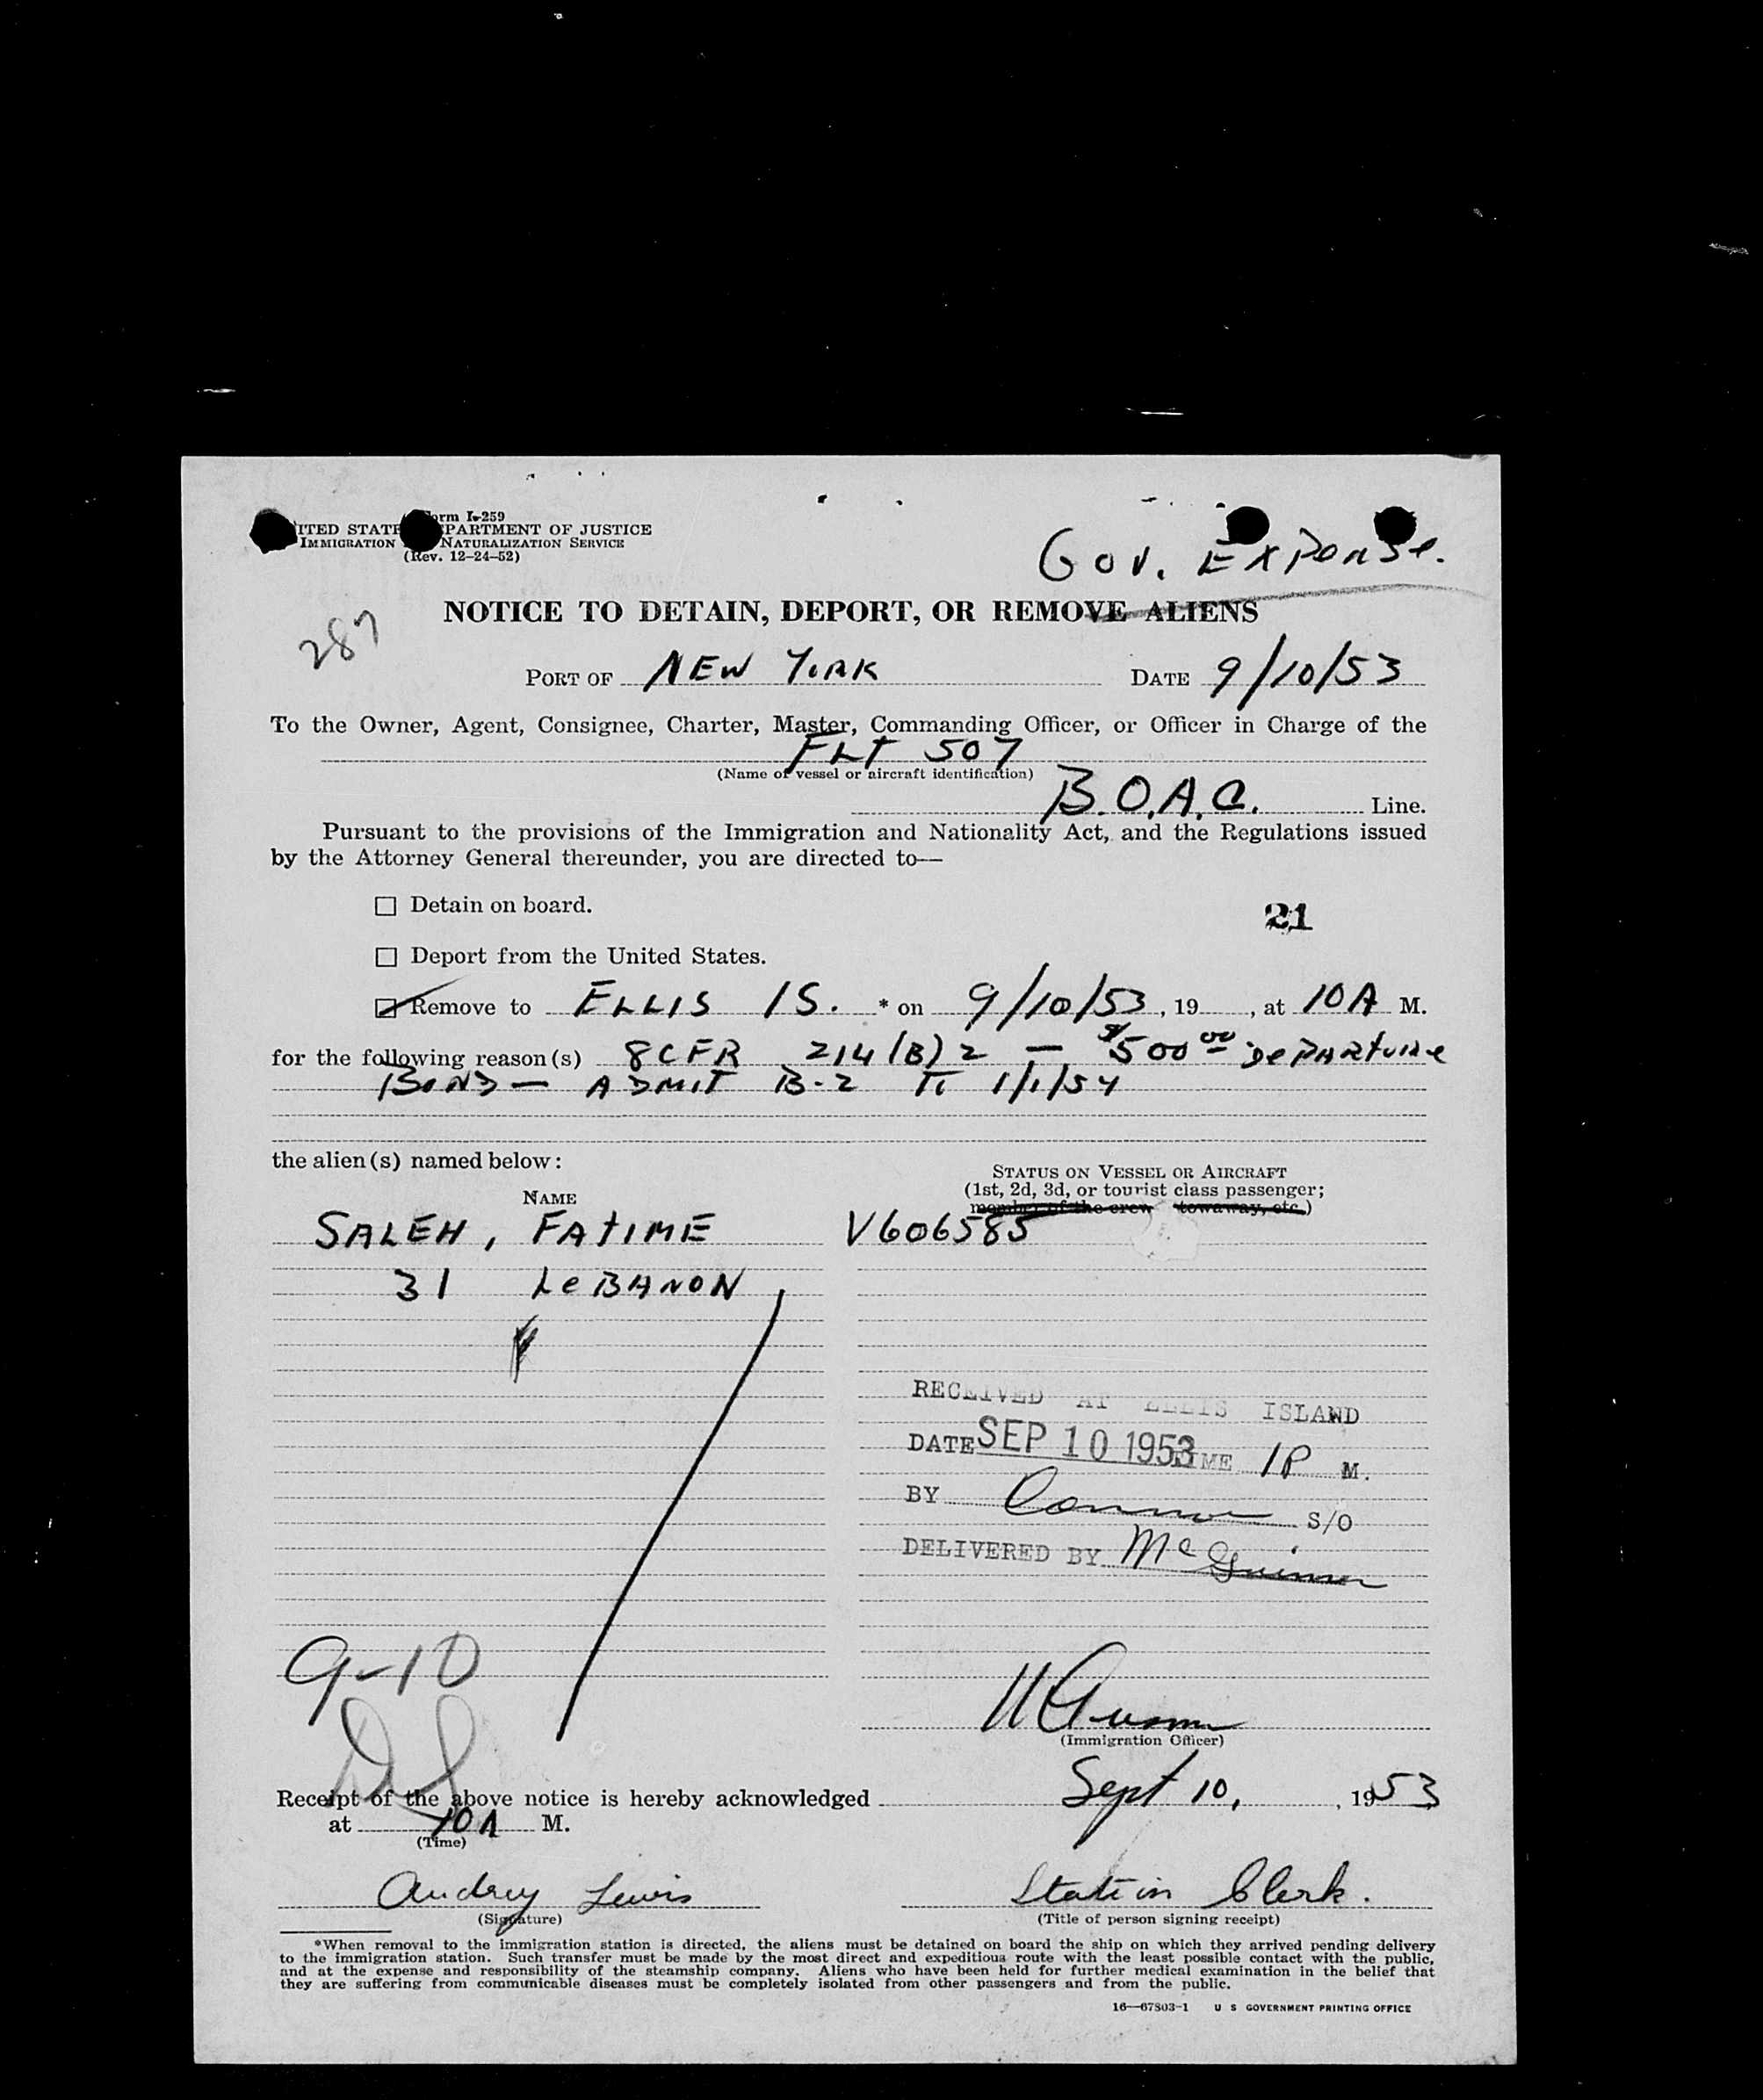 Form I-259
UNITED STATES DEPARTMENT OF JUSTICE
IMMIGRATION NATURALIZATION SERVICE
(Rev. 12-24-52)
Gov. Expense.
287
NOTICE TO DETAIN, DEPORT, OR REMOVE ALIENS
PORT OF NEW YORK DATE 9/10/53
To the Owner, Agent, Consignee, Charter, Master, Commanding Officer, or Officer in Charge of the
FLT 507
(Name of vessel or aircraft identification)
B.O.A.C. Line.
Pursuant to the provisions of the Immigration and Nationality Act, and the Regulations issued
by the Attorney General thereunder, you are directed to—
☐ Detain on board.
21
☐ Deport from the United States.
Remove to ELLIS IS. * on 9/10/53, 19 , at 10A M.
for the following reason(s) 8CFR 214(B)2 — $500 00 DEPARTURE
BOND — ADMIT B-2 TO 1/1/54
the alien(s) named below:
STATUS ON VESSEL OR AIRCRAFT
(1st, 2d, 3d, or tourist class passenger;
NAME
member of the crew towaway, etc.)
SALEH, FATIME V606585
31 LEBANON
RECEIVED AT ELLIS ISLAND
DATE SEP 10 1953 TIME 1P M.
BY S/O
DELIVERED BY
9-10
(Immigration Officer)
Receipt of the above notice is hereby acknowledged Sept 10, , 1953
at 10A M.
(Time)
Audrey Lewis Station Clerk.
(Signature) (Title of person signing receipt)
*When removal to the immigration station is directed, the aliens must be detained on board the ship on which they arrived pending delivery
to the immigration station. Such transfer must be made by the most direct and expeditious route with the least possible contact with the public,
and at the expense and responsibility of the steamship company. Aliens who have been held for further medical examination in the belief that
they are suffering from communicable diseases must be completely isolated from other passengers and from the public.
16—67803-1 U S GOVERNMENT PRINTING OFFICE